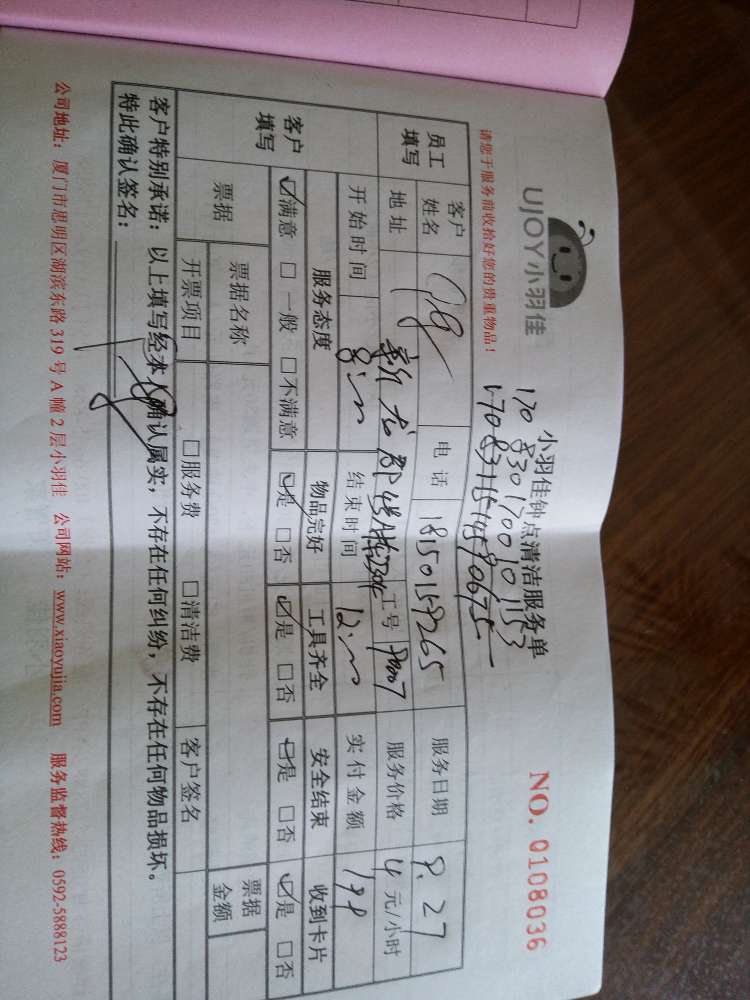 UJOY小羽佳
小羽佳钟点清洁服务单
NO. 0108036
请您于服务前收拾好您的贵重物品！
员工填写
客户姓名
电话 18150159265
服务日期 9.27
地址
工号
服务价格 4 元/小时
开始时间
结束时间
实付金额
客户填写
服务态度
物品完好
工具齐全
安全结束
收到卡片
☑满意 □一般 □不满意
☑是 □否
☑是 □否
☑是 □否
☑是 □否
票据
票据名称
票据金额
开票项目
□服务费 □清洁费
客户签名
客户特别承诺：以上填写经本人确认属实，不存在任何纠纷，不存在任何物品损坏。
特此确认签名：
公司地址：厦门市思明区湖滨东路 319 号 A 幢 2 层小羽佳 公司网站：www.xiaoyujia.com 服务监督热线：0592-5888123